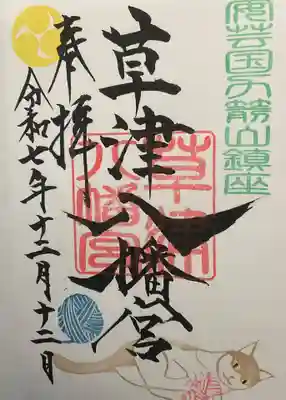 安芸国力箭山鎮座
草津八幡宮
草津八幡宮
奉拝
令和七年十二月十二日